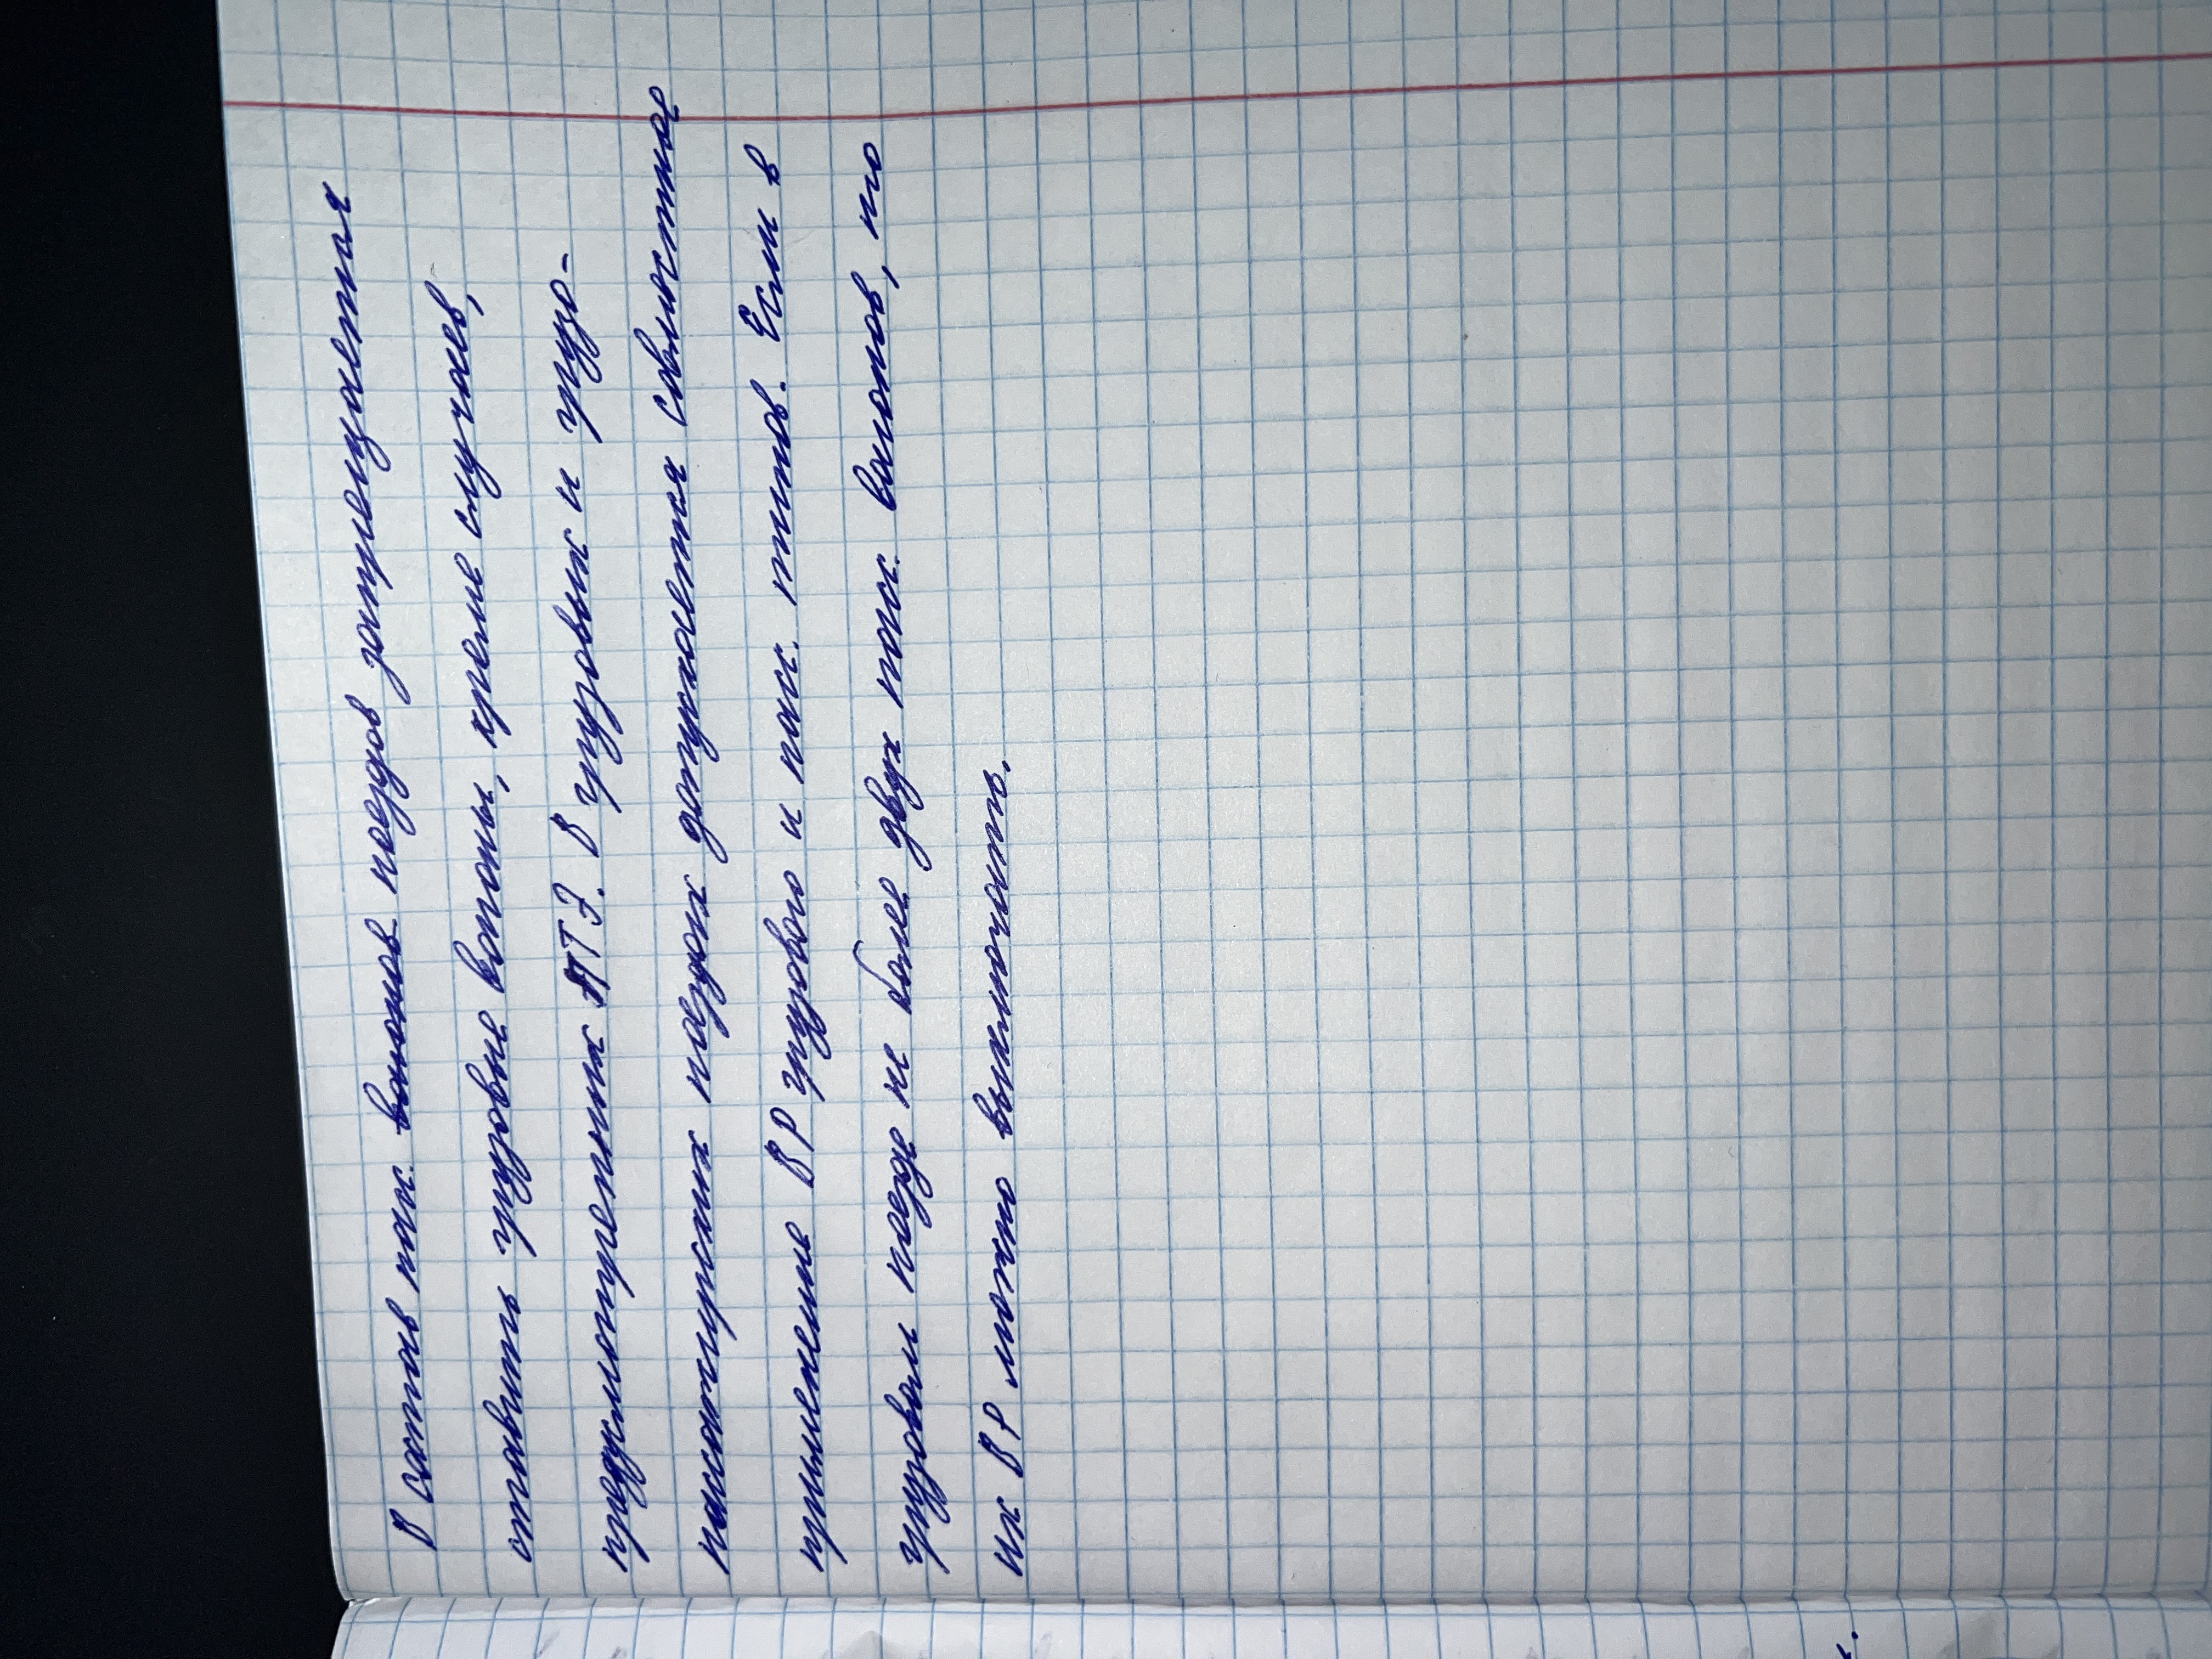 В состав пасс. вагонов поездов запрещается
ставить грузовые вагоны, кроме случаев,
предусмотренных ПТЭ. В грузовых и грузо-
пассажирских поездах допускается совместное
применение ВР грузового и пасс. типов. Если в
грузовом поезде не более двух пасс. вагонов, то
их ВР можно выключить.